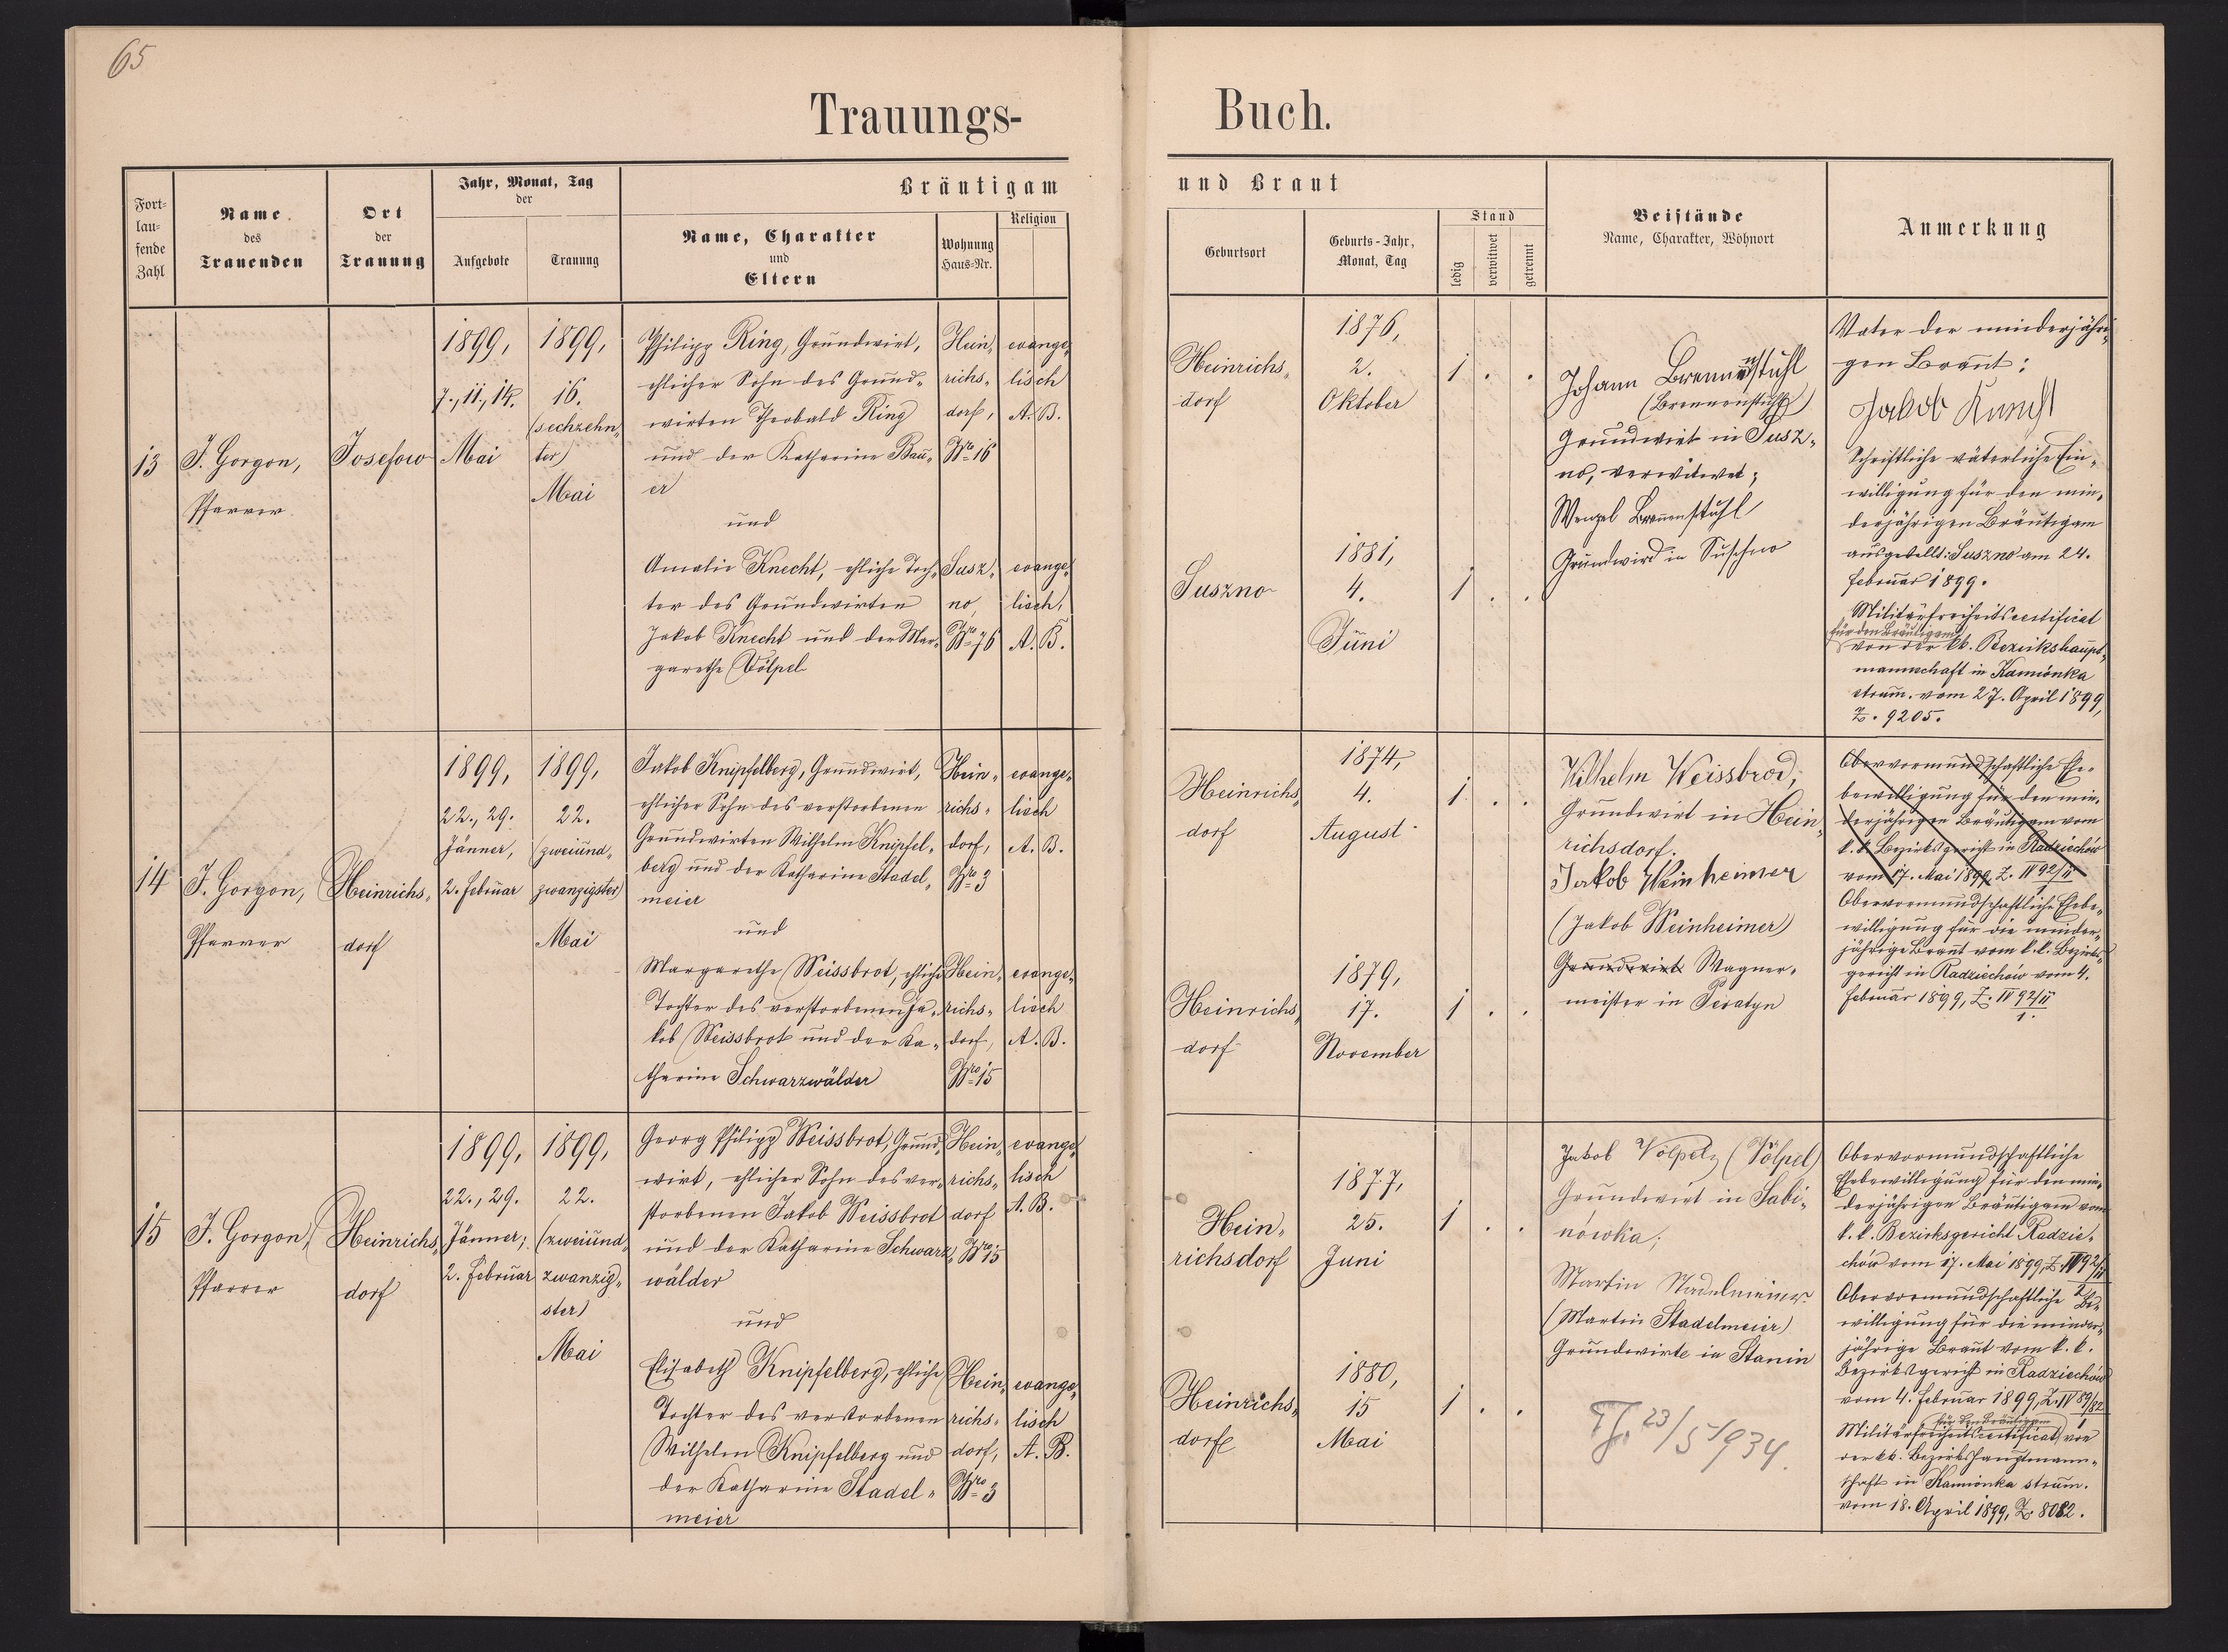 65
Trauungs-
Buch.
Fort-
lau-
fende
Zahl
Name
des
Trauenden
Ort
der
Trauung
Jahr, Monat, Tag
der
Aufgebote
Trauung
Bräutigam
Name, Charakter
und
Eltern
Wohnung
Haus-Nr.
Religion
und Braut
Geburtsort
Geburts-Jahr,
Monat, Tag
Stand
ledig
verwitwet
getrennt
Beistände
Name, Charakter, Wohnort
Anmerkung
13
J. Gorgon,
Pfarrer
Josefow
1899,
7., 11., 14.
Mai
1899,
16.
(sechzehn„
ter)
Mai
Philipp Ring, Grundwirt,
ehlicher Sohn des Grund„
wirten Theobald Ring
und der Katharine Bau„
er
und
Amalie Knecht, ehliche Toch„
ter des Grundwirten
Jakob Knecht und der Mar„
garethe Völpel
Hein„
richs„
dorf,
Nro 16
Susz„
no,
Nro 76
evange„
lisch
A. B.
evange„
lisch,
A. B.
Heinrichs„
dorf
1876,
2.
Oktober
1 . .
Suszno
1881,
4.
Juni
1 . .
Johann Brennstuhl
(Brennenstuhl)
Grundwirt in Susz„
no, verwitwet;
Wenzel Brennenstuhl
Grundwird in Suschno
Vater der minderjähri„
gen Braut:
Jakob Knecht
Schriftliche väterliche Ein„
willigung für den min„
derjährigen Bräutigam
ausgestellt: Suszno am 24.
Februar 1899.
Militärfreiheitscertificat
für den Bräutigam
von der kk. Bezirkshaupt„
mannschaft in Kamionka
strum. vom 27. April 1899,
Z. 9205.
14
J. Gorgon,
Pfarrer
Heinrichs„
dorf
1899,
22., 29.
Jänner,
2. Februar
1899,
22.
(zweiund„
zwanzigster)
Mai
Jakob Knipfelberg, Grundwirt,
ehlicher Sohn des verstorbenen
Grundwirten Wilhelm Knipfel„
berg und der Katharine Stadel„
meier
und
Margarethe Weissbrot, ehliche
Tochter des verstorbenen Ja„
kob Weissbrot und der Ka„
tharine Schwarzwälder
Hein„
richs„
dorf,
Nro 3
Hein„
richs„
dorf,
Nro 15
evange„
lisch
A. B.
evange„
lisch
A. B.
Heinrichs„
dorf
1874,
4.
August
1 . .
Heinrichs„
dorf
1879,
17.
November
1 . .
Wilhelm Weissbrod,
Grundwirt in Hein„
richsdorf.
Jakob Weinheimer
(Jakob Weinheimer)
Grundwirt Wagner„
meister in Peratyn
Obervormundschaftliche Ehe„
bewilligung für den min„
derjährigen Bräutigam vom
k. k. Bezirksgericht in Radziechów
vom 17. Mai 1899, Z. IV 92/II
1
Obervormundschaftliche Ehebe„
willigung für die minder„
jährige Braut vom k. k. Bezirks„
gericht in Radziechów vom 4.
Februar 1899, Z. IV 92/II
1.
15
J. Gorgon,
Pfarrer
Heinrichs„
dorf
1899,
22., 29.
Jänner;
2. Februar
1899,
22.
(zweiund„
zwanzig„
ster)
Mai
Georg Philipp Weissbrot, Grund„
wirt, ehlicher Sohn des ver„
storbenen Jakob Weissbrot
und der Katharine Schwarz„
wälder
und
Elisabeth Knipfelberg, ehliche
Tochter des verstorbenen
Wilhelm Knipfelberg und
der Katharine Stadel„
meier
Hein„
richs„
dorf
Nro 15
Hein„
richs„
dorf,
Nro 3
evange„
lisch
A. B.
evange„
lisch
A. B.
Hein„
richsdorf
1877,
25.
Juni
1 . .
Heinrichs„
dorf
1880,
15
Mai
1 . .
Jakob Völpelz (Völpel)
Grundwirt in Sabi„
nówka;
Martin Stadelmeier
(Martin Stadelmeier)
Grundwirte in Stanin
23/5 1934.
Obervormundschaftliche
Ehebewilligung für den min„
derjährigen Bräutigam vom
k. k. Bezirksgericht Radzie„
chów vom 17. Mai 1899, Z. IV 92/II
2
Obervormundschaftliche Be„
willigung für die minder„
jährige Braut vom k. k.
Bezirksgericht in Radziechów
vom 4. Februar 1899, Z. IV 89/82
1
für den Bräutigam
Militärfreiheitscertificat von
der kk. Bezirkshauptmann„
schaft in Kamionka strum.
vom 18. April 1899, Z. 8082.